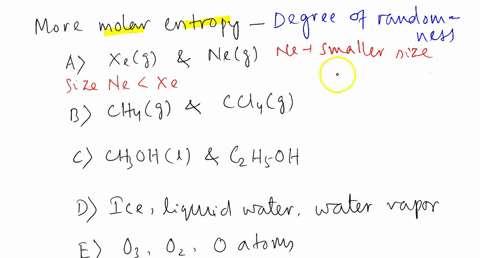 More molar entropy – Degree of random-
ness
A) Xe(g) & Ne(g) Ne → smaller size
Size Ne < Xe
B) CH4(g) & CCl4(g)
C) CH3OH(l) & C2H5OH
D) Ice, liquid water, water vapor
E) O3, O2, O atoms